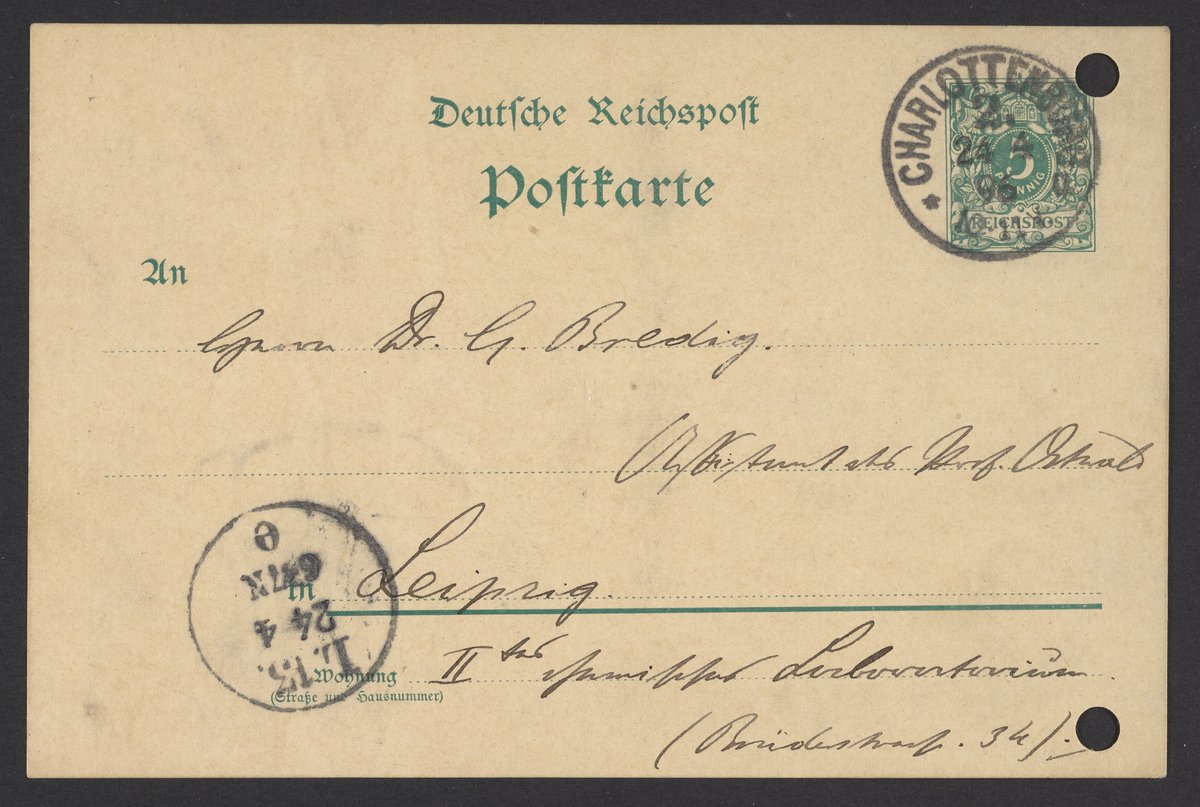 Deutsche Reichspost
Postkarte
CHARLOTTENBURG
2.
24 4
96
5
PFENNIG
REICHSPOST
An
Herrn Dr. G. Bredig.
(Assistent des Prof. Ostwald
in Leipzig.
L. 13.
24 4
6-7N
Wohnung
(Straße und Hausnummer)
II tes chemisches Laboratorium
(Brüderstrasse. 34).